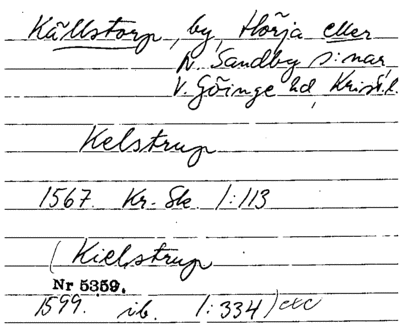 Källstorp, by, Hörja eller
N. Sandby s:nar,
V. Göinge hd, Krist.l.
Kelstrup
1567. Kr. Sk. 1:113
(Kielstrup
Nr 5359.
1599. ib. 1:334) exc